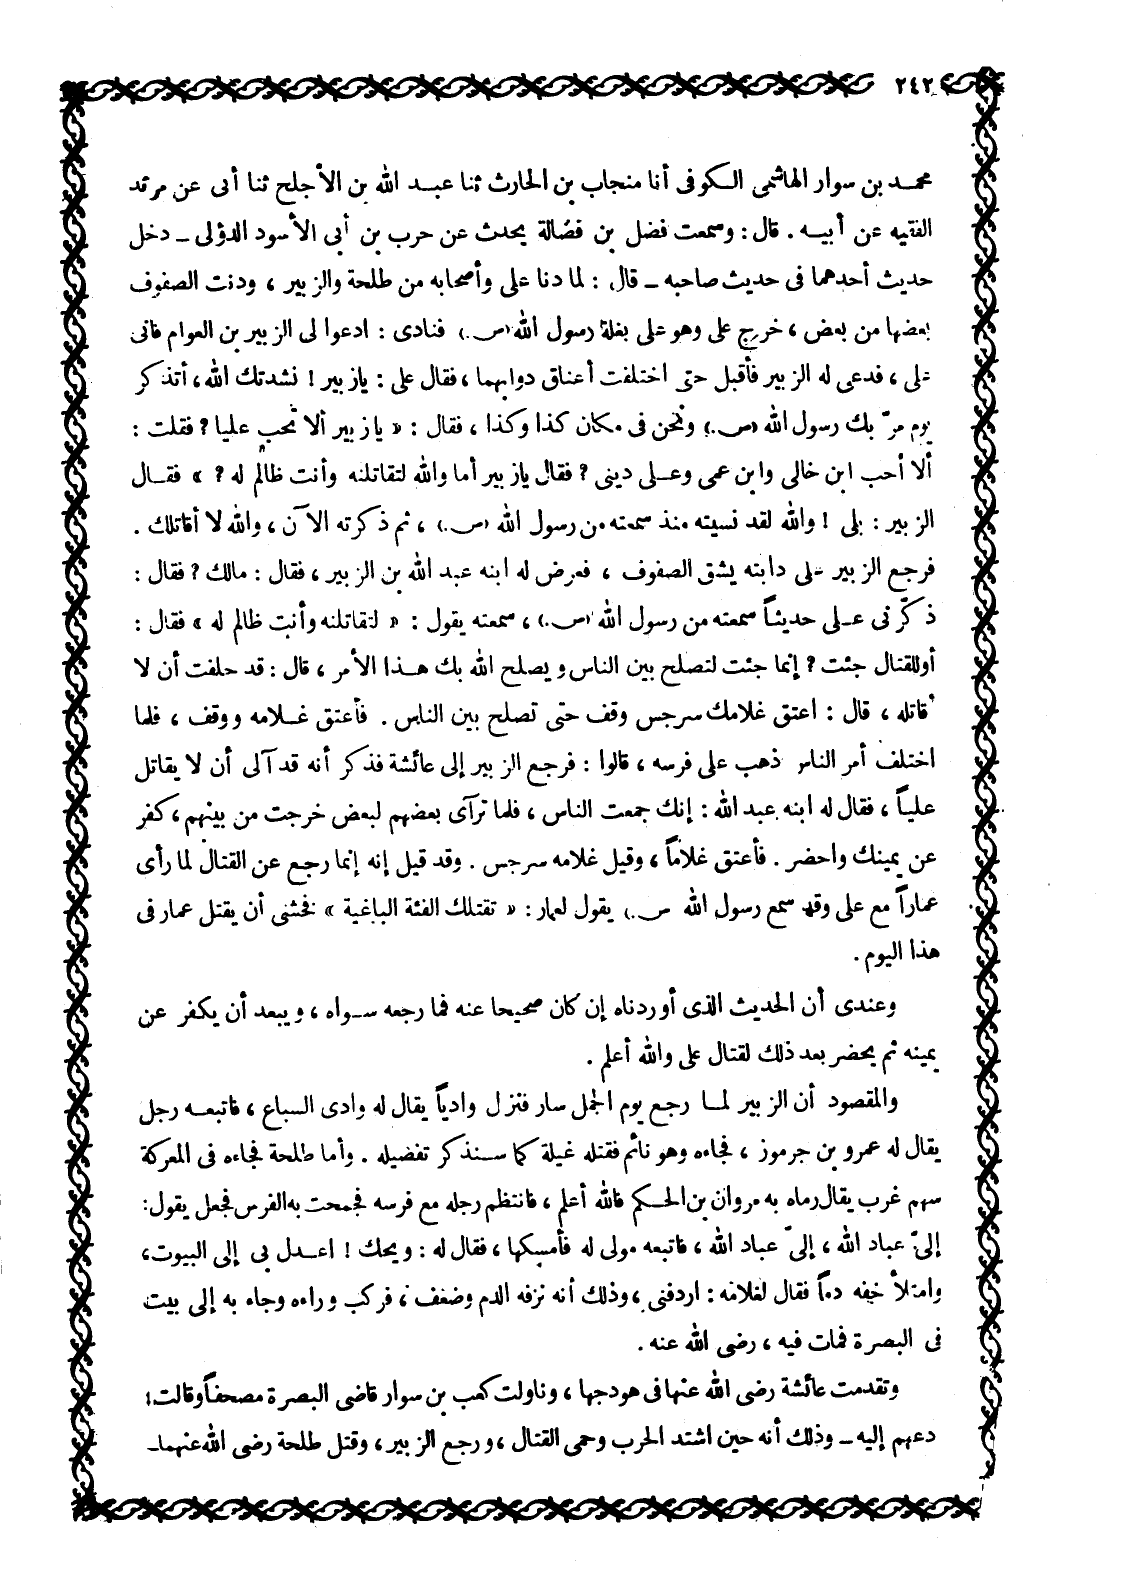 ٢٤٢
محمد بن سوار الهاشمى الكوفى أنا منجاب بن الحارث ثنا عبد الله بن الأجلح ثنا أبى عن مرثد
الفقيه عن أبيه . قال : وسمعت فضل بن فضالة يحدث عن حرب بن أبى الأسود الدؤلى ــ دخل
حديث أحدهما فى حديث صاحبه ــ قال : لما دنا على وأصحابه من طلحة والزبير ، ودنت الصفوف
بعضها من بعض ، خرج على وهو على بغلة رسول الله (س.) فنادى : ادعوا لى الزبير بن العوام فانى
على ، فدعى له الزبير فأقبل حتى اختلفت أعناق دوابهما ، فقال على : يازبير ! نشدتك الله ، أتذكر
يوم مرّ بك رسول الله (س.) ونحن فى مكان كذا وكذا ، فقال : « يازبير ألا تحب عليا ? فقلت :
ألا أحب ابن خالى وابن عمى وعلى دينى ? فقال يازبير أما والله لتقاتلنه وأنت ظالم له ? » فقال
الزبير : بلى ! والله لقد نسيته منذ سمعته من رسول الله (س.) ، ثم ذكرته الآن ، والله لا أقاتلك .
فرجع الزبير على دابته يشق الصفوف ، فعرض له ابنه عبد الله بن الزبير ، فقال : مالك ? فقال :
ذكّرنى على حديثاً سمعته من رسول الله (س.) ، سمعته يقول : « لتقاتلنه وأنت ظالم له » فقال :
أوللقتال جئت ? إنما جئت لتصلح بين الناس ويصلح الله بك هذا الأمر ، قال : قد حلفت أن لا
أقاتله ، قال : اعتق غلامك سرجس وقف حتى تصلح بين الناس . فأعتق غلامه ووقف ، فلما
اختلف أمر الناس ذهب على فرسه ، قالوا : فرجع الزبير إلى عائشة فذكر أنه قد آلى أن لا يقاتل
علياً ، فقال له ابنه عبد الله : إنك جمعت الناس ، فلما ترآى بعضهم لبعض خرجت من بينهم ، كفر
عن يمينك واحضر . فأعتق غلاماً ، وقيل غلامه سرجس . وقد قيل إنه إنما رجع عن القتال لما رأى
عماراً مع على وقد سمع رسول الله س.) يقول لعمار : « تقتلك الفئة الباغية » فخشى أن يقتل عمار فى
هذا اليوم .
وعندى أن الحديث الذى أوردناه إن كان صحيحا عنه فما رجعه سواه ، ويبعد أن يكفر عن
يمينه ثم يحضر بعد ذلك لقتال على والله أعلم .
والمقصود أن الزبير لما رجع يوم الجمل سار فنزل وادياً يقال له وادى السباع ، فاتبعه رجل
يقال له عمرو بن جرموز ، فجاءه وهو نائم فقتله غيلة كما سنذكر تفضيله . وأما طلحة فجاءه فى المعركة
سهم غرب يقال رماه به مروان بن الحكم فالله أعلم ، فانتظم رجله مع فرسه فجمحت به الفرس فجعل يقول:
إلىّ عباد الله ، إلىّ عباد الله ، فاتبعه مولى له فأمسكها ، فقال له : ويحك ! اعدل بى إلى البيوت،
وامتلأ خفه دماً فقال لغلامه : اردفنى ، وذلك أنه نزفه الدم وضعف ، فركب وراءه وجاء به إلى بيت
فى البصرة فمات فيه ، رضى الله عنه .
وتقدمت عائشة رضى الله عنها فى هودجها ، وناولت كعب بن سوار قاضى البصرة مصحفاً وقالت :
دعهم إليه ــ وذلك أنه حين اشتد الحرب وحمى القتال ، ورجع الزبير ، وقتل طلحة رضى الله عنهما ــ